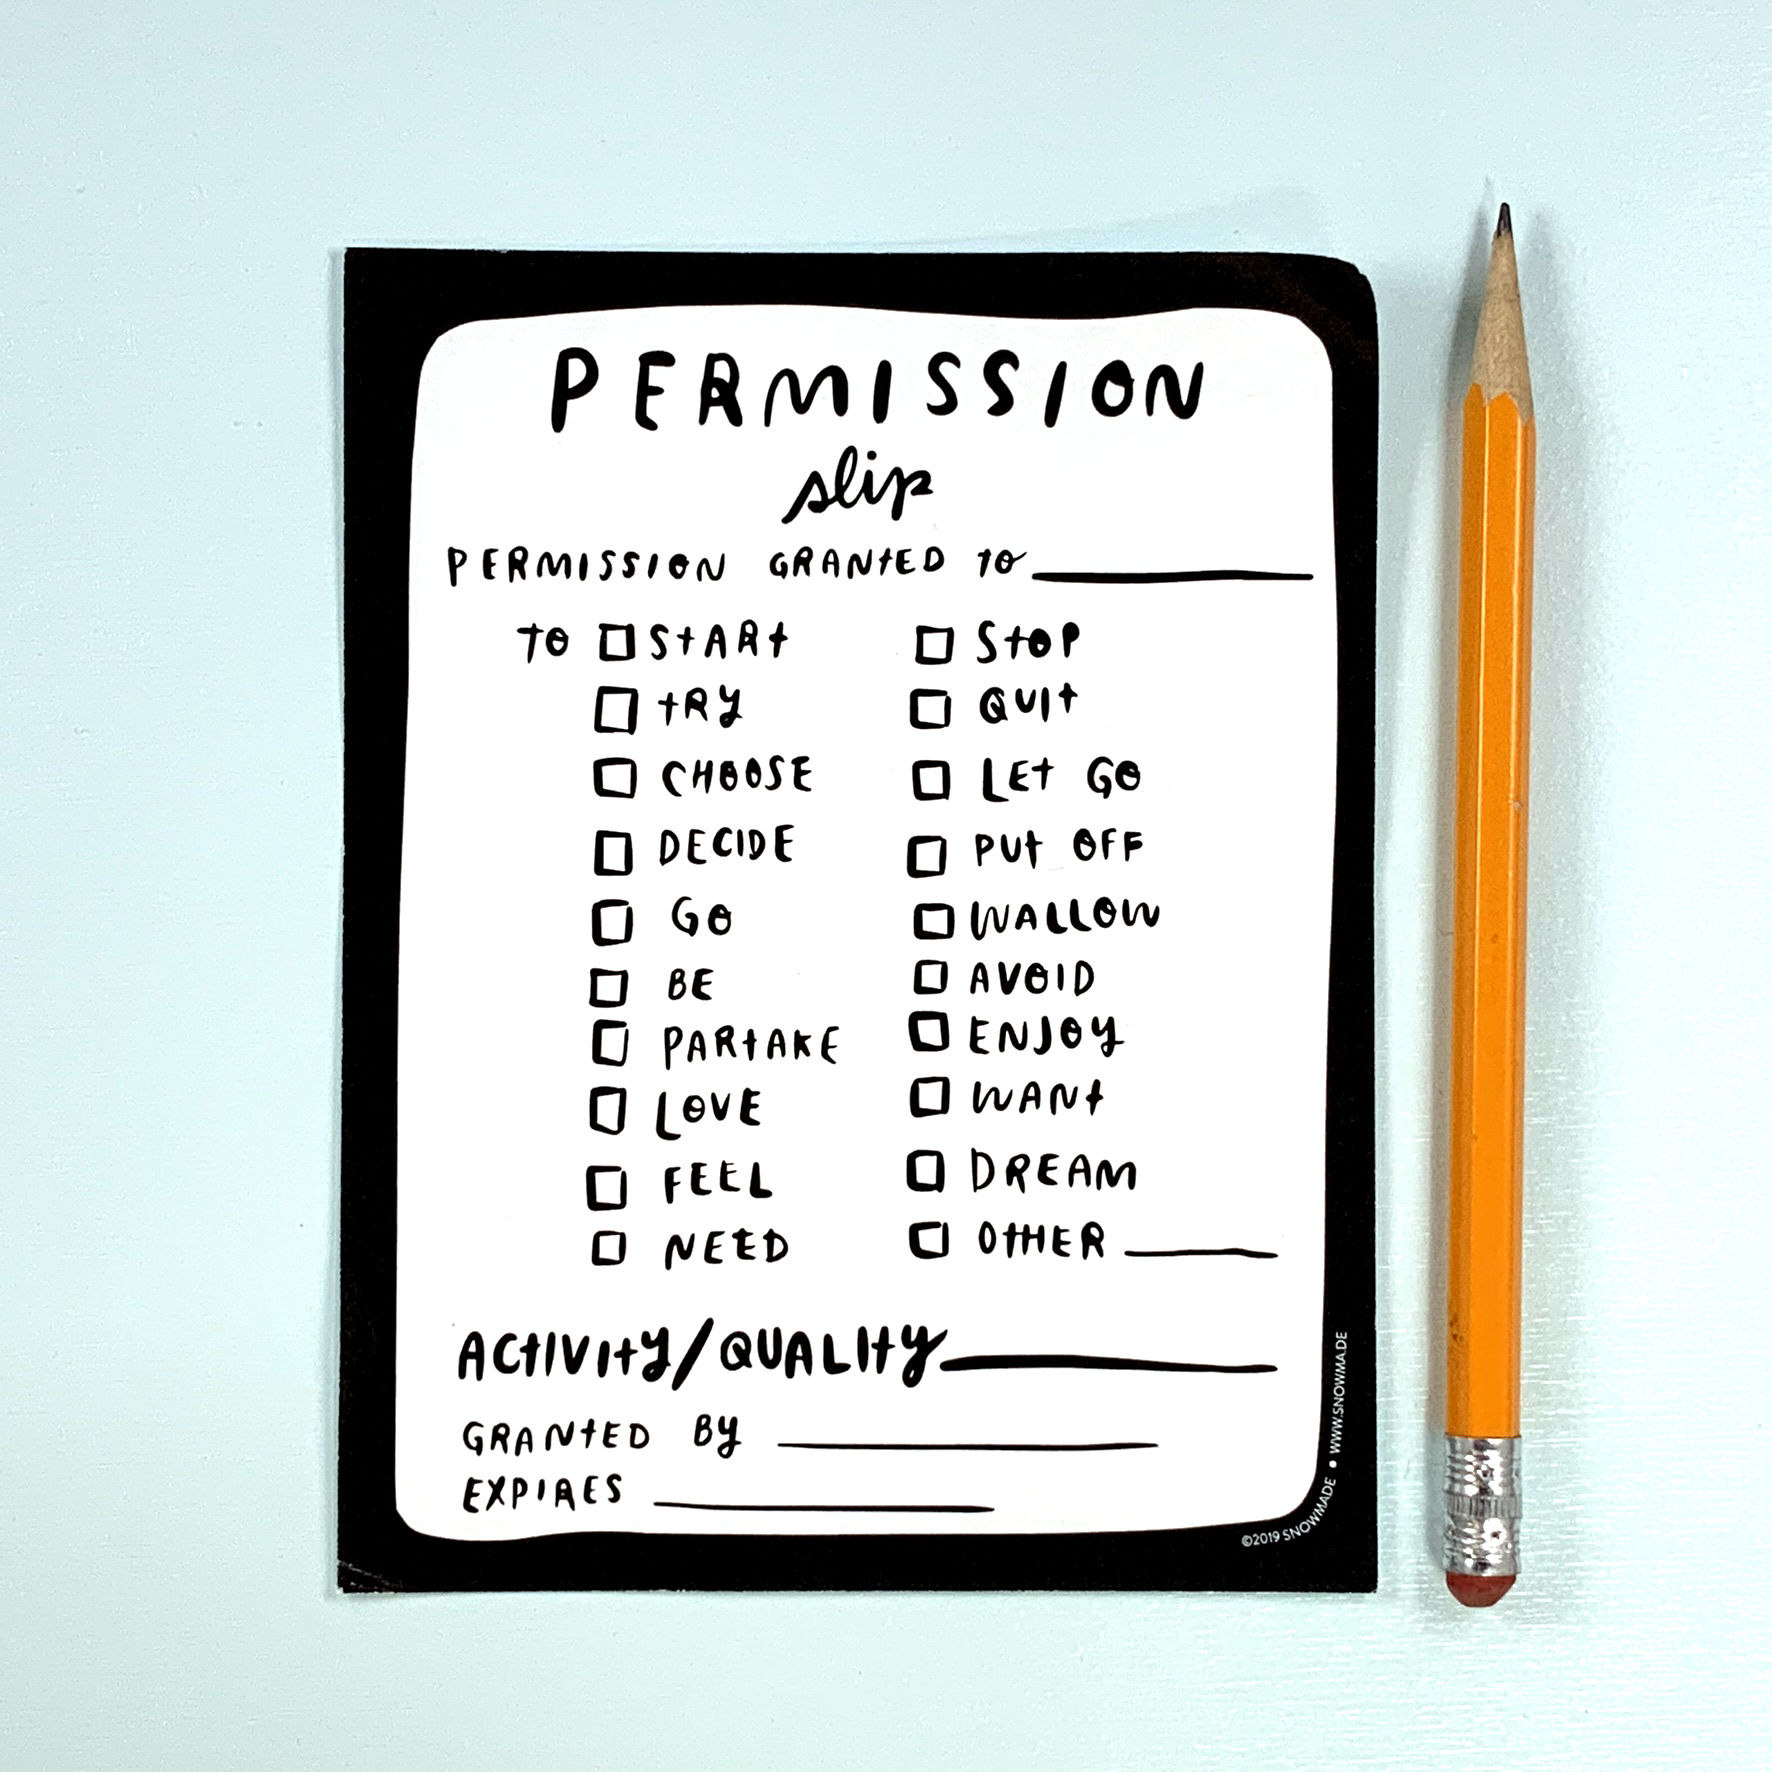 PERMISSION
slip
PERMISSION GRANTED TO
TO START
TRY
CHOOSE
DECIDE
GO
BE
PARTAKE
LOVE
FEEL
NEED
STOP
QUIT
LET GO
PUT OFF
WALLOW
AVOID
ENJOY
WANT
DREAM
OTHER
ACTIVITY/QUALITY
GRANTED BY
EXPIRES
©2019 SNOWMADE • WWW.SNOWMA.DE